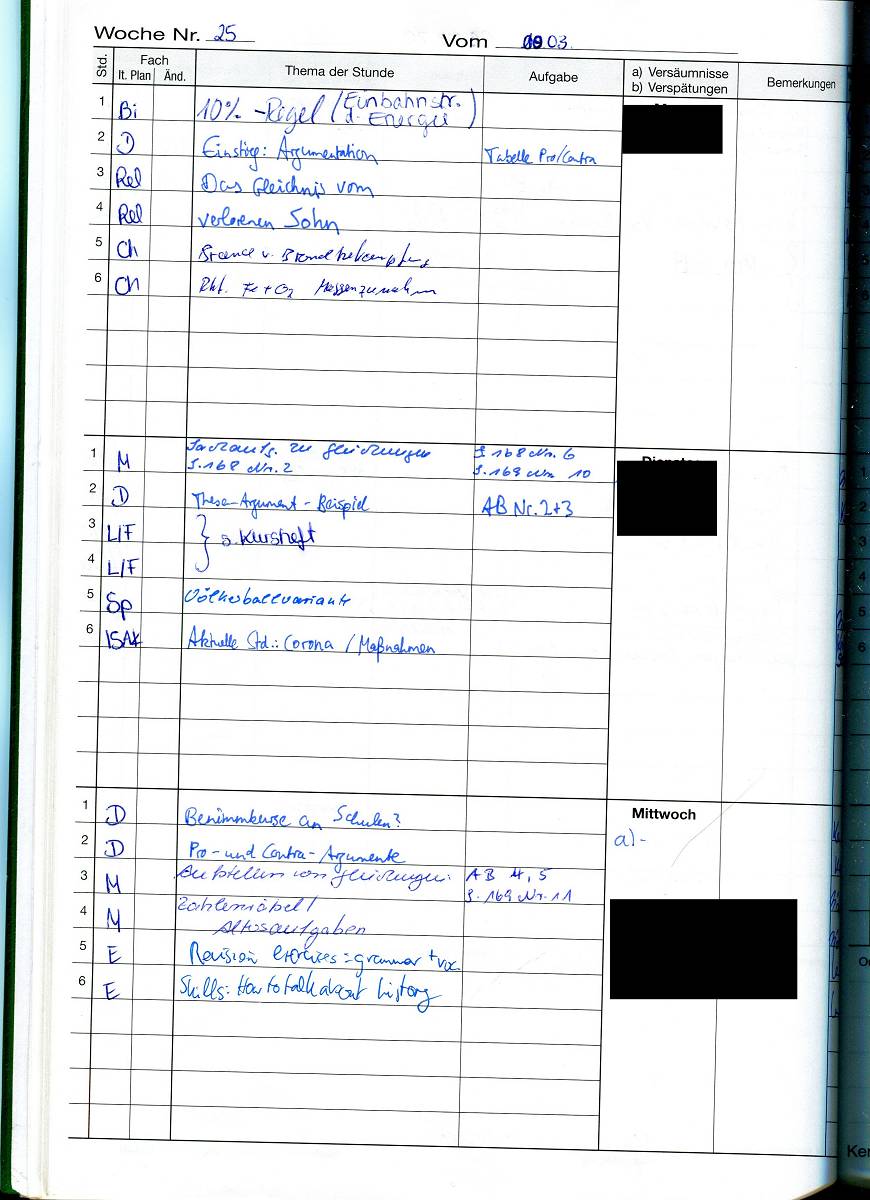 Woche Nr. 25 Vom 09.03.
Std. Fach Thema der Stunde Aufgabe a) Versäumnisse Bemerkungen
lt. Plan Änd. b) Verspätungen
1 Bi 10% -Regel (Einbahnstr. d. Energie)
2 D Einstieg: Argumentation Tabelle Pro/Contra
3 Rel Das Gleichnis vom
4 Rel verlorenen Sohn
5 Ch Brände u. Brandbekämpfung
6 Ch Rkt. Fe + O2 Massenzunahme
1 M Sachaufg. zu Gleichungen S. 168 Nr. 6
S. 168 Nr. 2 S. 169 Nr. 10
Dienstag
2 D These-Argument-Beispiel AB Nr. 2+3
3 L/F } s. Kursheft
4 L/F
5 Sp Völkerballvariante
6 ISAK Aktuelle Std.: Corona / Maßnahmen
1 D Benimmkurse an Schulen? Mittwoch
a) -
2 D Pro- und Contra-Argumente
3 M Aufstellen von Gleichungen AB 4, 5
S. 169 Nr. 11
4 M Zahlenrätsel /
Altersaufgaben
5 E Revision exercises: grammar + voc
6 E Skills: How to talk about history